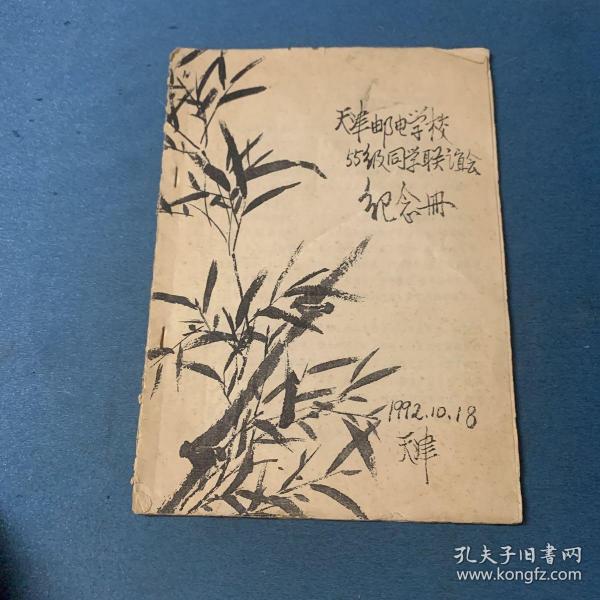 天津邮电学校
55级同学联谊会
纪念册
1992.10.18
天津
孔夫子旧书网
www.kongfz.com